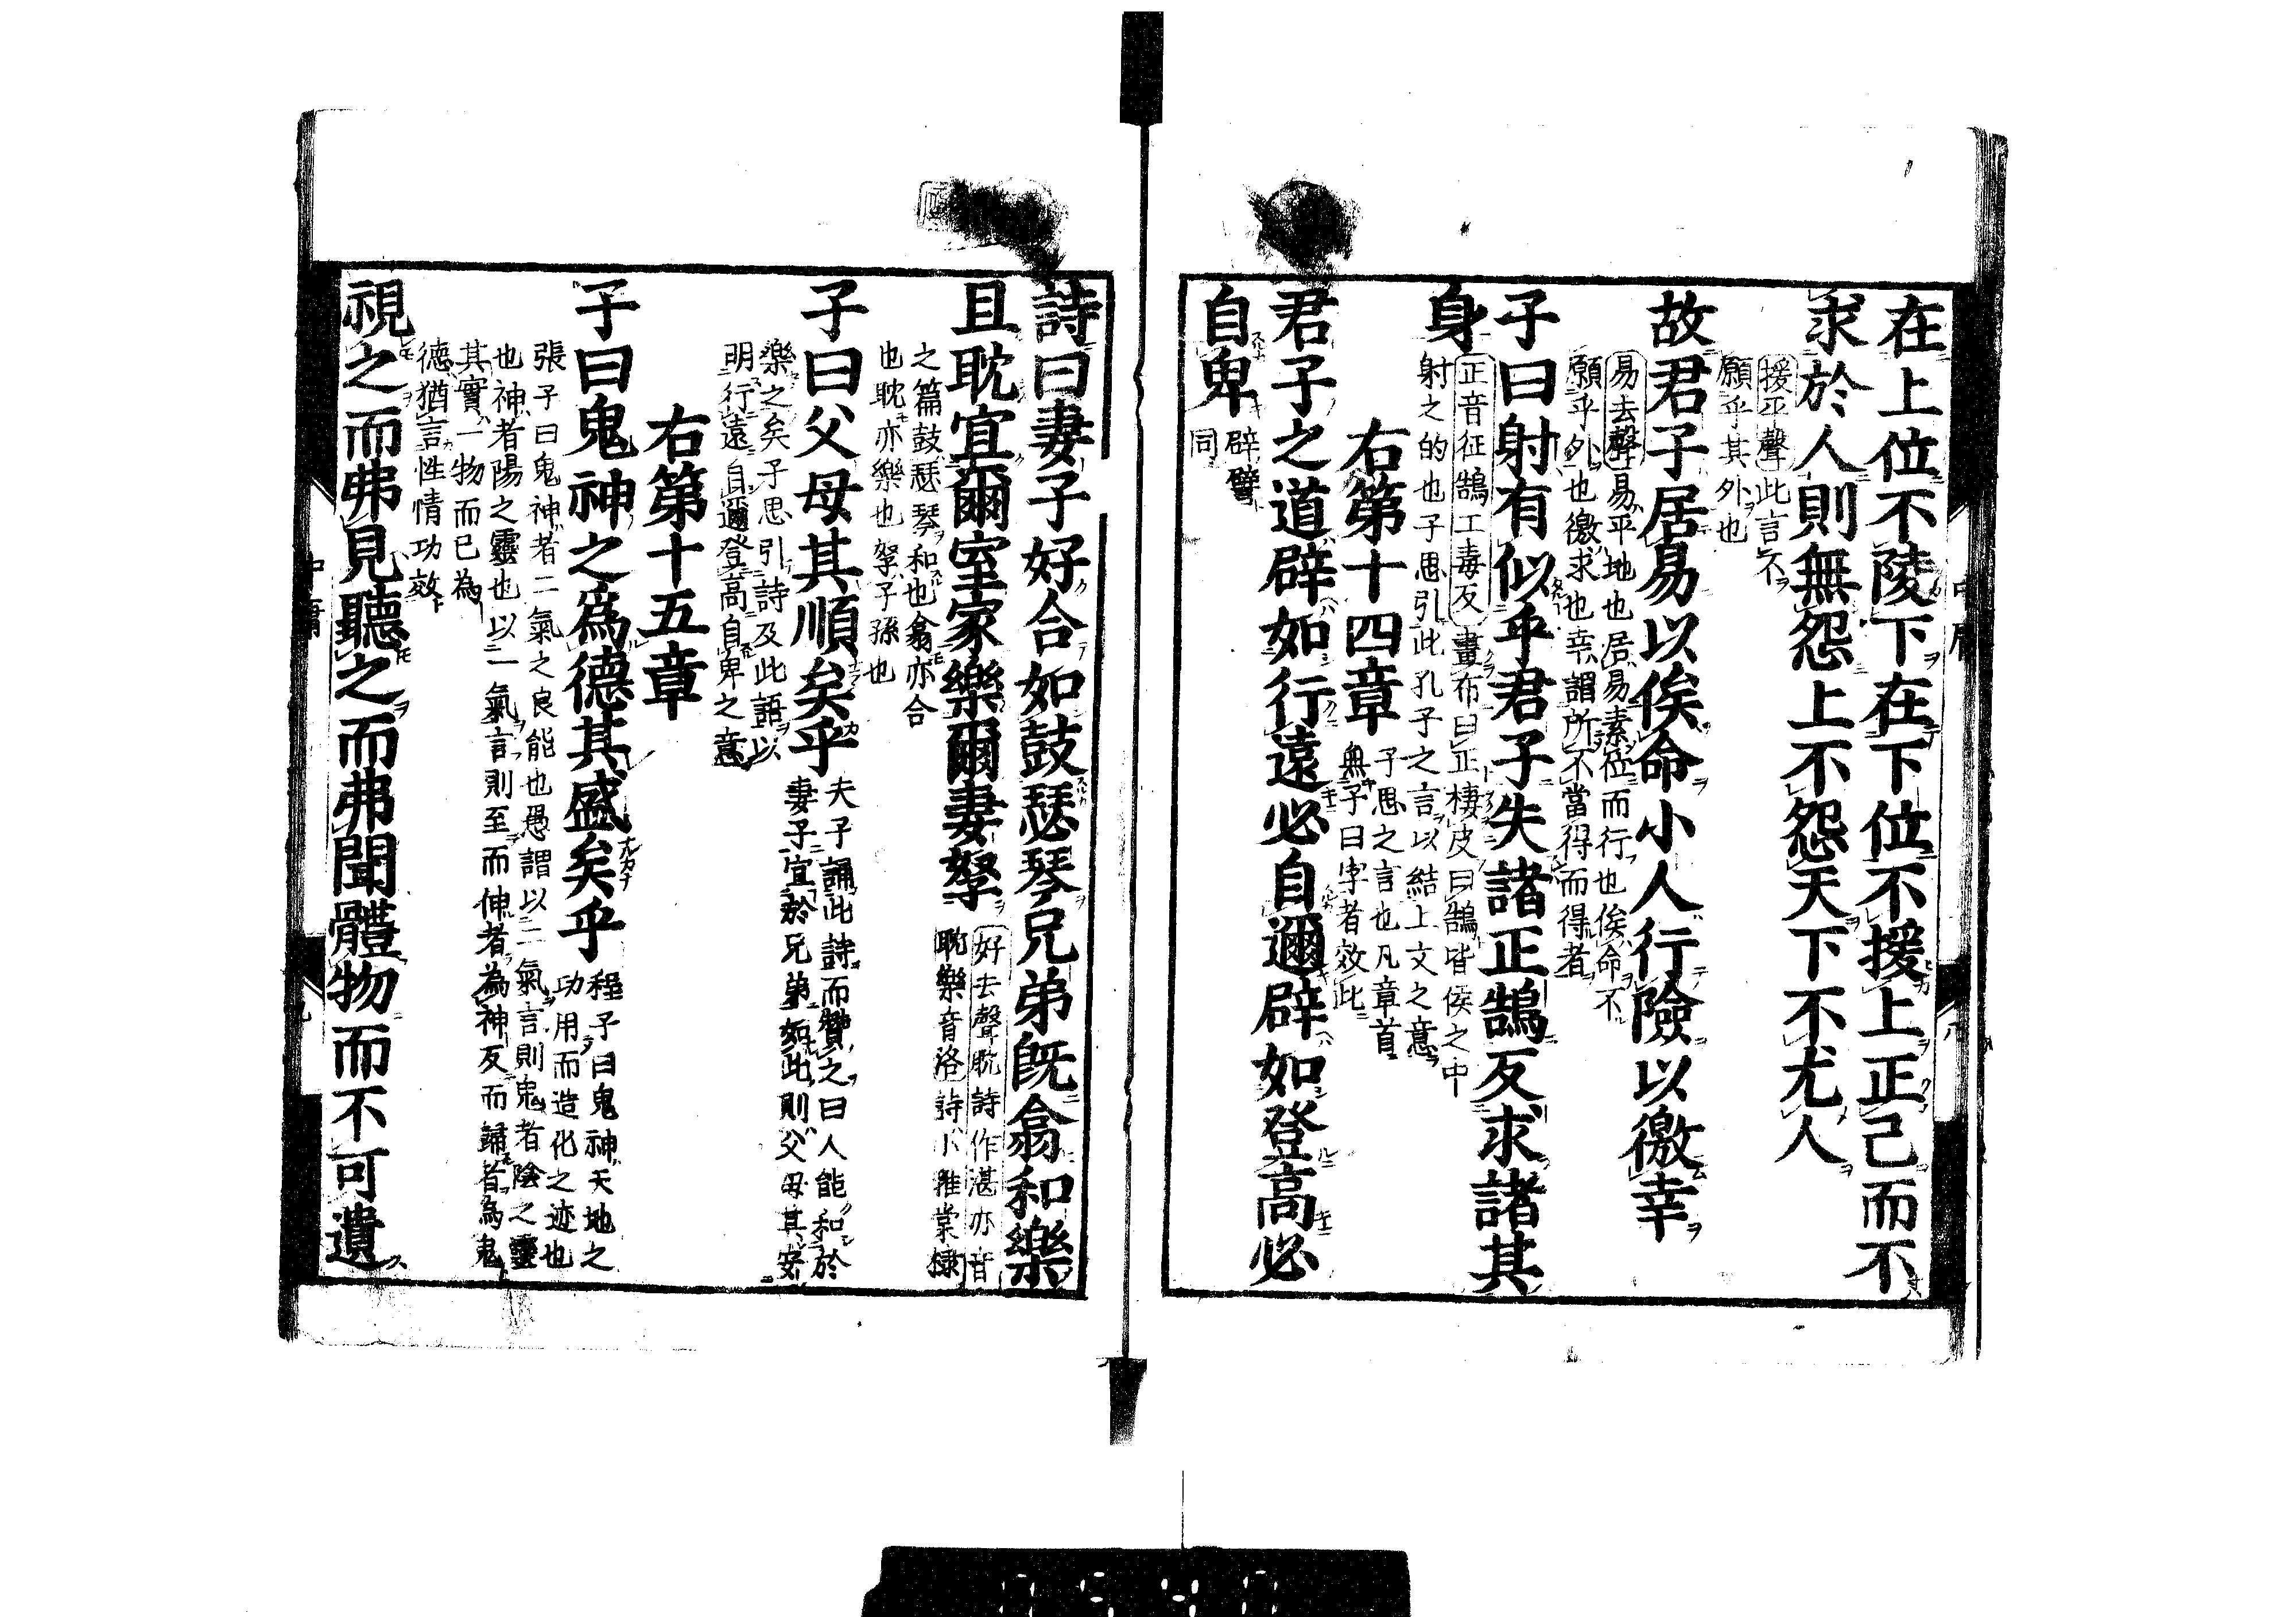 在上位不陵下在下位不援上正己而不
求於人則無怨上不怨天下不尤人
援平聲此言不
願乎其外也
故君子居易以俟命小人行險以徼幸
易去聲易平地也居易素位而行也俟命不
願乎外也徼求也幸謂所不當得而得者
子曰射有似乎君子失諸正鵠反求諸其
身
正音征鵠工毒反畫布曰正棲皮曰鵠皆侯之中
射之的也子思引此孔子之言以結上文之意
右第十四章
子思之言也凡章首
無子曰字者效此
君子之道辟如行遠必自邇辟如登高必
自卑
辟譬
同
詩曰妻子好合如鼓瑟琴兄弟既翕和樂
且耽宜爾室家樂爾妻孥
好去聲耽詩作湛亦音
耽樂音洛詩小雅棠棣
之篇鼓瑟琴和也翕亦合
也耽亦樂也孥子孫也
子曰父母其順矣乎
夫子誦此詩而贊之曰人能和於
妻子宜於兄弟如此則父母其安
樂之矣子思引詩及此語以
明行遠自邇登高自卑之意
右第十五章
子曰鬼神之爲德其盛矣乎
程子曰鬼神天地之
功用而造化之迹也
張子曰鬼神者二氣之良能也愚謂以二氣言則鬼者陰之靈
也神者陽之靈也以一氣言則至而伸者為神反而歸者為鬼
其實一物而已為
德猶言性情功效
視之而弗見聽之而弗聞體物而不可遺